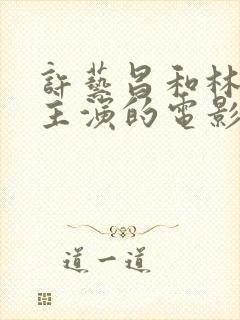 許藝昌和林
主演的電影
道一道